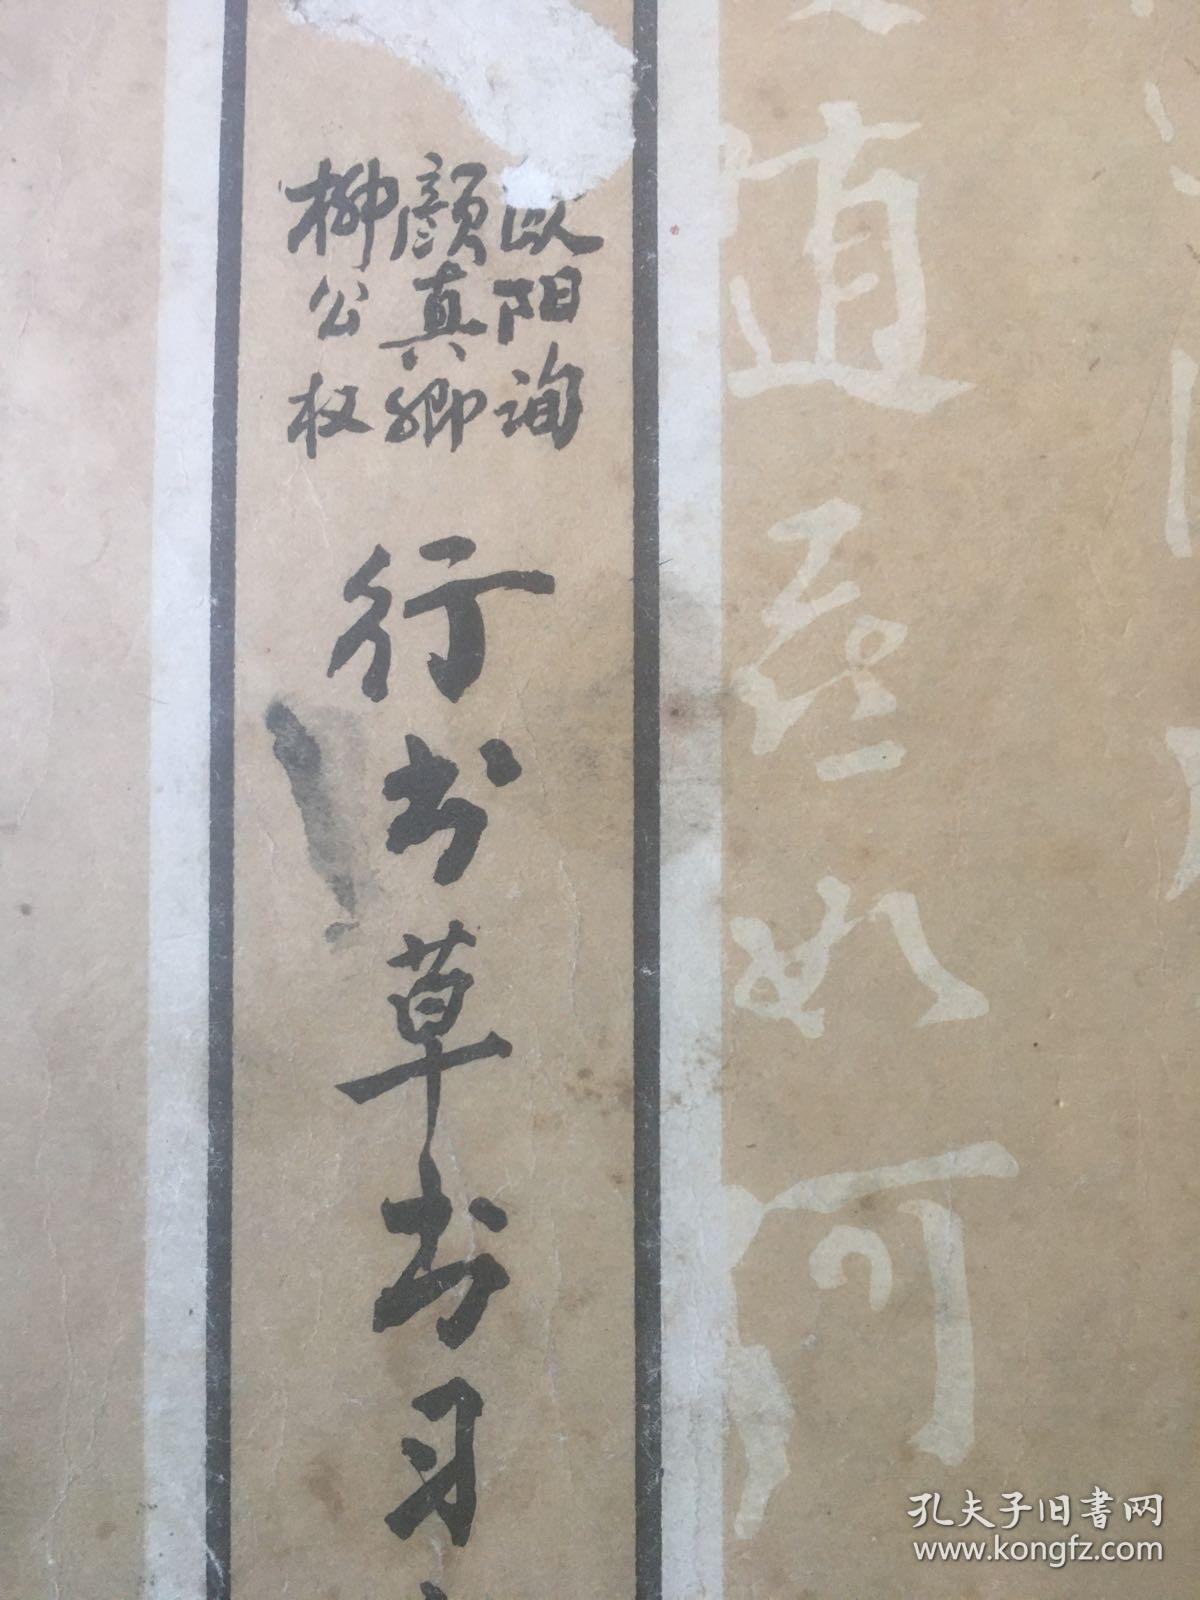 欧阳询
颜真卿
柳公权
行书草书习
如何
孔夫子旧书网
www.kongfz.com